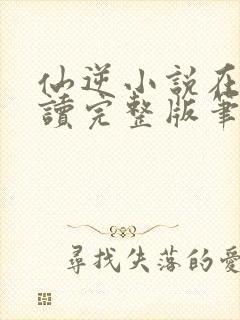 仙逆小說在
讀完整版筆
尋找失落的愛